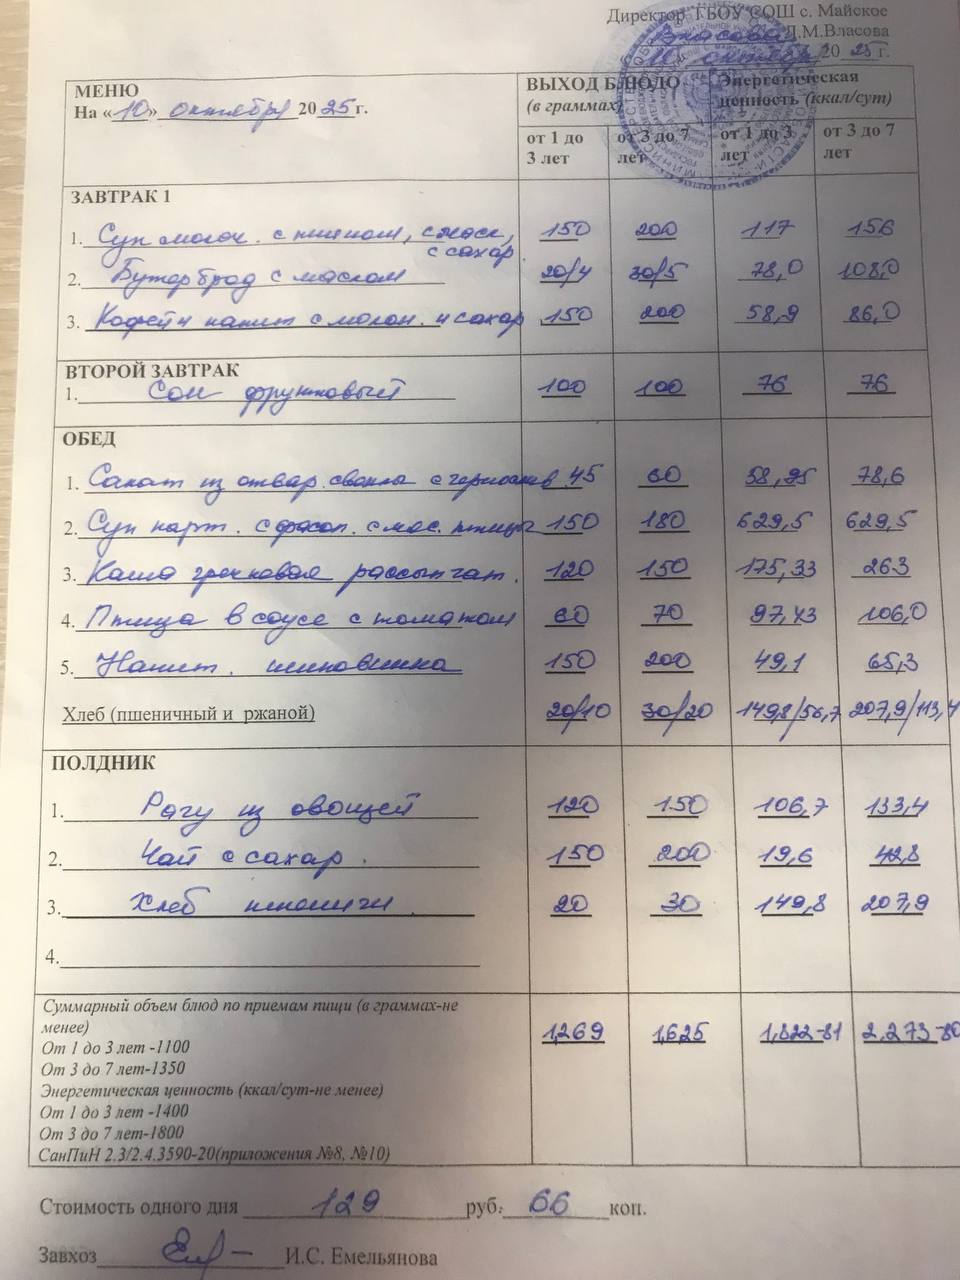 Директор ГБОУ СОШ с. Майское
Власова Л.М.Власова
10 октября 2025г.
МЕНЮ
На «10» октября 2025г.
ВЫХОД БЛЮД
(в граммах)
Энергетическая
ценность (ккал/сут)
от 1 до
3 лет
от 3 до 7
лет
от 1 до 3
лет
от 3 до 7
лет
ЗАВТРАК 1
1. Суп молоч. с пшеном, с масл, с сахар. 150 200 117 156
2. Бутерброд с маслом 20/4 30/5 78,0 108,0
3. Кофейн напит с молок. и сахар 150 200 58,9 86,0
ВТОРОЙ ЗАВТРАК
1. Сок фруктовый 100 100 76 76
ОБЕД
1. Салат из отвар. свеклы с чернослив. 45 60 58,95 78,6
2. Суп карт. с фасол. с мяс. птицы 150 180 629,5 629,5
3. Каша гречневая рассыпчат. 120 150 175,33 263
4. Птица в соусе с томатом 60 70 97,43 106,0
5. Напит. шиповника 150 200 49,1 65,3
Хлеб (пшеничный и ржаной) 20/10 30/20 149,8/56,7 207,9/113,4
ПОЛДНИК
1. Рагу из овощей 120 150 106,7 133,4
2. Чай с сахар. 150 200 19,6 42,8
3. Хлеб пшенич 20 30 149,8 207,9
4.
Суммарный объем блюд по приемам пищи (в граммах-не
менее) 1,269 1,625 1,822-81 2,273-80
От 1 до 3 лет -1100
От 3 до 7 лет-1350
Энергетическая ценность (ккал/сут-не менее)
От 1 до 3 лет -1400
От 3 до 7 лет-1800
СанПиН 2.3/2.4.3590-20(приложения №8, №10)
Стоимость одного дня 129 руб. 66 коп.
Завхоз И.С. Емельянова